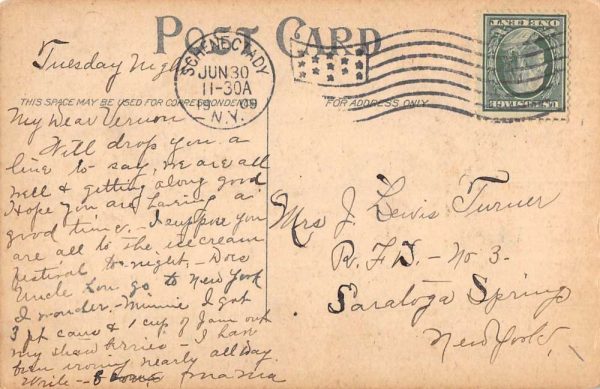 POST CARD
SCHENECTADY
JUN 30
11-30A
1909
N.Y.
THIS SPACE MAY BE USED FOR CORRESPONDENCE
FOR ADDRESS ONLY
Tuesday Night
My Dear Vernon
Will drop you a
line to say, we are all
well & getting along good
Hope you are having a
good time. - I suppose you
are all to the icecream
festival to-night, - Does
Uncle Lon go to New York
I wonder. - Minnie I got
3 pt cans & 1 cup of Jam out
my straw berries - I have
been ironing nearly all day.
Write - mama
Mrs J. Lewis Turner
R. F. D. - No 3 -
Saratoga Springs
New York,